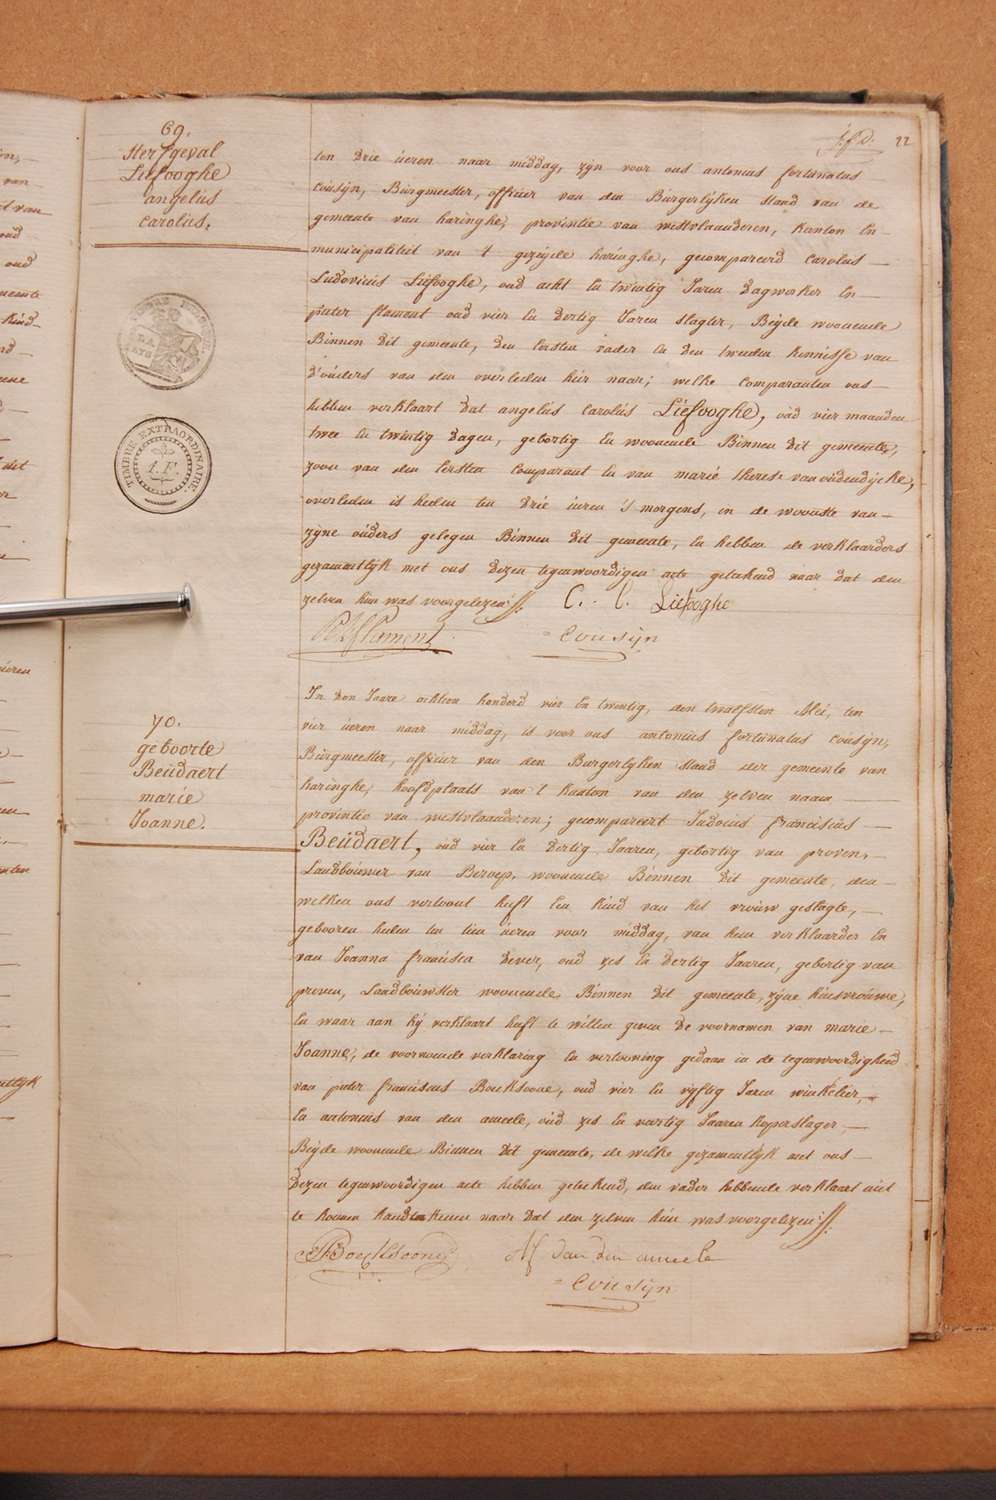 22
69.
Sterfgeval
Liefooghe
angelus
carolus.
ten drie ùeren naar middag, zyn voor ons antonius fortunatus
cousÿn, Bùrgmeester, officier van den Bùrgerlÿken stand van de
gemeente van haringhe, provintie van westvlaanderen, kanton en
municipaliteit van 't gezeÿde haringhe, gecompareerd carolus
Ludovicùs Liefooghe, oud acht en twintig Jaren dagwerker en
pieter flament oud vier en dertig Jaren slagter, Beÿde woonende
Binnen dit gemeente, den eersten vader en den tweeden kennisse van
d'oùders van den overleden hier naar; welke comparanten ons
hebben verklaart dat angelùs carolùs Liefooghe, oùd vier maanden
twee en twintig dagen, gebortig en woonende Binnen dit gemeente,
zoon van den eersten comparant en van marie therese van oùdendÿcke,
overleden is heden ten drie ùeren 's morgens, in de wooniste van
zÿne oùders gelegen Binnen dit gemeente, en hebben de verklaarders
gezamentlÿk met ons dezen tegenwoordigen acte geteekend naar dat den
zelven hùn was voorgelezen
C. L. Liefooghe
P Flament
cousÿn
70.
geboorte
Beùdaert
marie
Joanne.
In den Jaare achtien honderd vier en twintig, den twalfsten Meÿ, ten
vier ùeren naar middag, is voor ons antonius fortunatus cousÿn,
Bùrgmeester, officier van den Burgerlÿken stand der gemeente van
haringhe, hoofdplaats van 't kanton van den zelven naam
provintie van westvlaanderen; gecompareert Judocùs franciscùs
Beùdaert, oud vier en dertig Jaaren, gebortig van proven,
Landboùwer van Beroep, woonende Binnen dit gemeente, den
welken ons vertoont heeft een kind van het vroùwgeslagte,
gebooren heden ten tien ùeren voor middag, van hem verklaarder en
van Joanna francisca Dever, oud zes en dertig Jaaren, gebortig van
proven, Landboùwster woonende Binnen dit gemeente, zÿne hùisvroùwe,
en waar aan hÿ verklaart heeft te willen geven de voornamen van marie
Joanne, de voornoemde verklaring en vertooning gedaan in de tegenwoordigheid
van pieter franciscus Boecksoone, oud vier en vÿftig Jaren winkelier,
en antonius van den ameele, oùd zes en veertig Jaaren koperslager,
Beÿde woonende Binnen dit gemeente, de welke gezamentlÿk met ons
dezen tegenwoordigen acte hebben geteekend, den vader hebbende verklaart niet
te konnen handteekenen naar dat den zelven hùn was voorgelezen
Boecksoone
Af van den ameele
cousÿn
TIMBRE EXTRAORDINAIRE.
1. F.